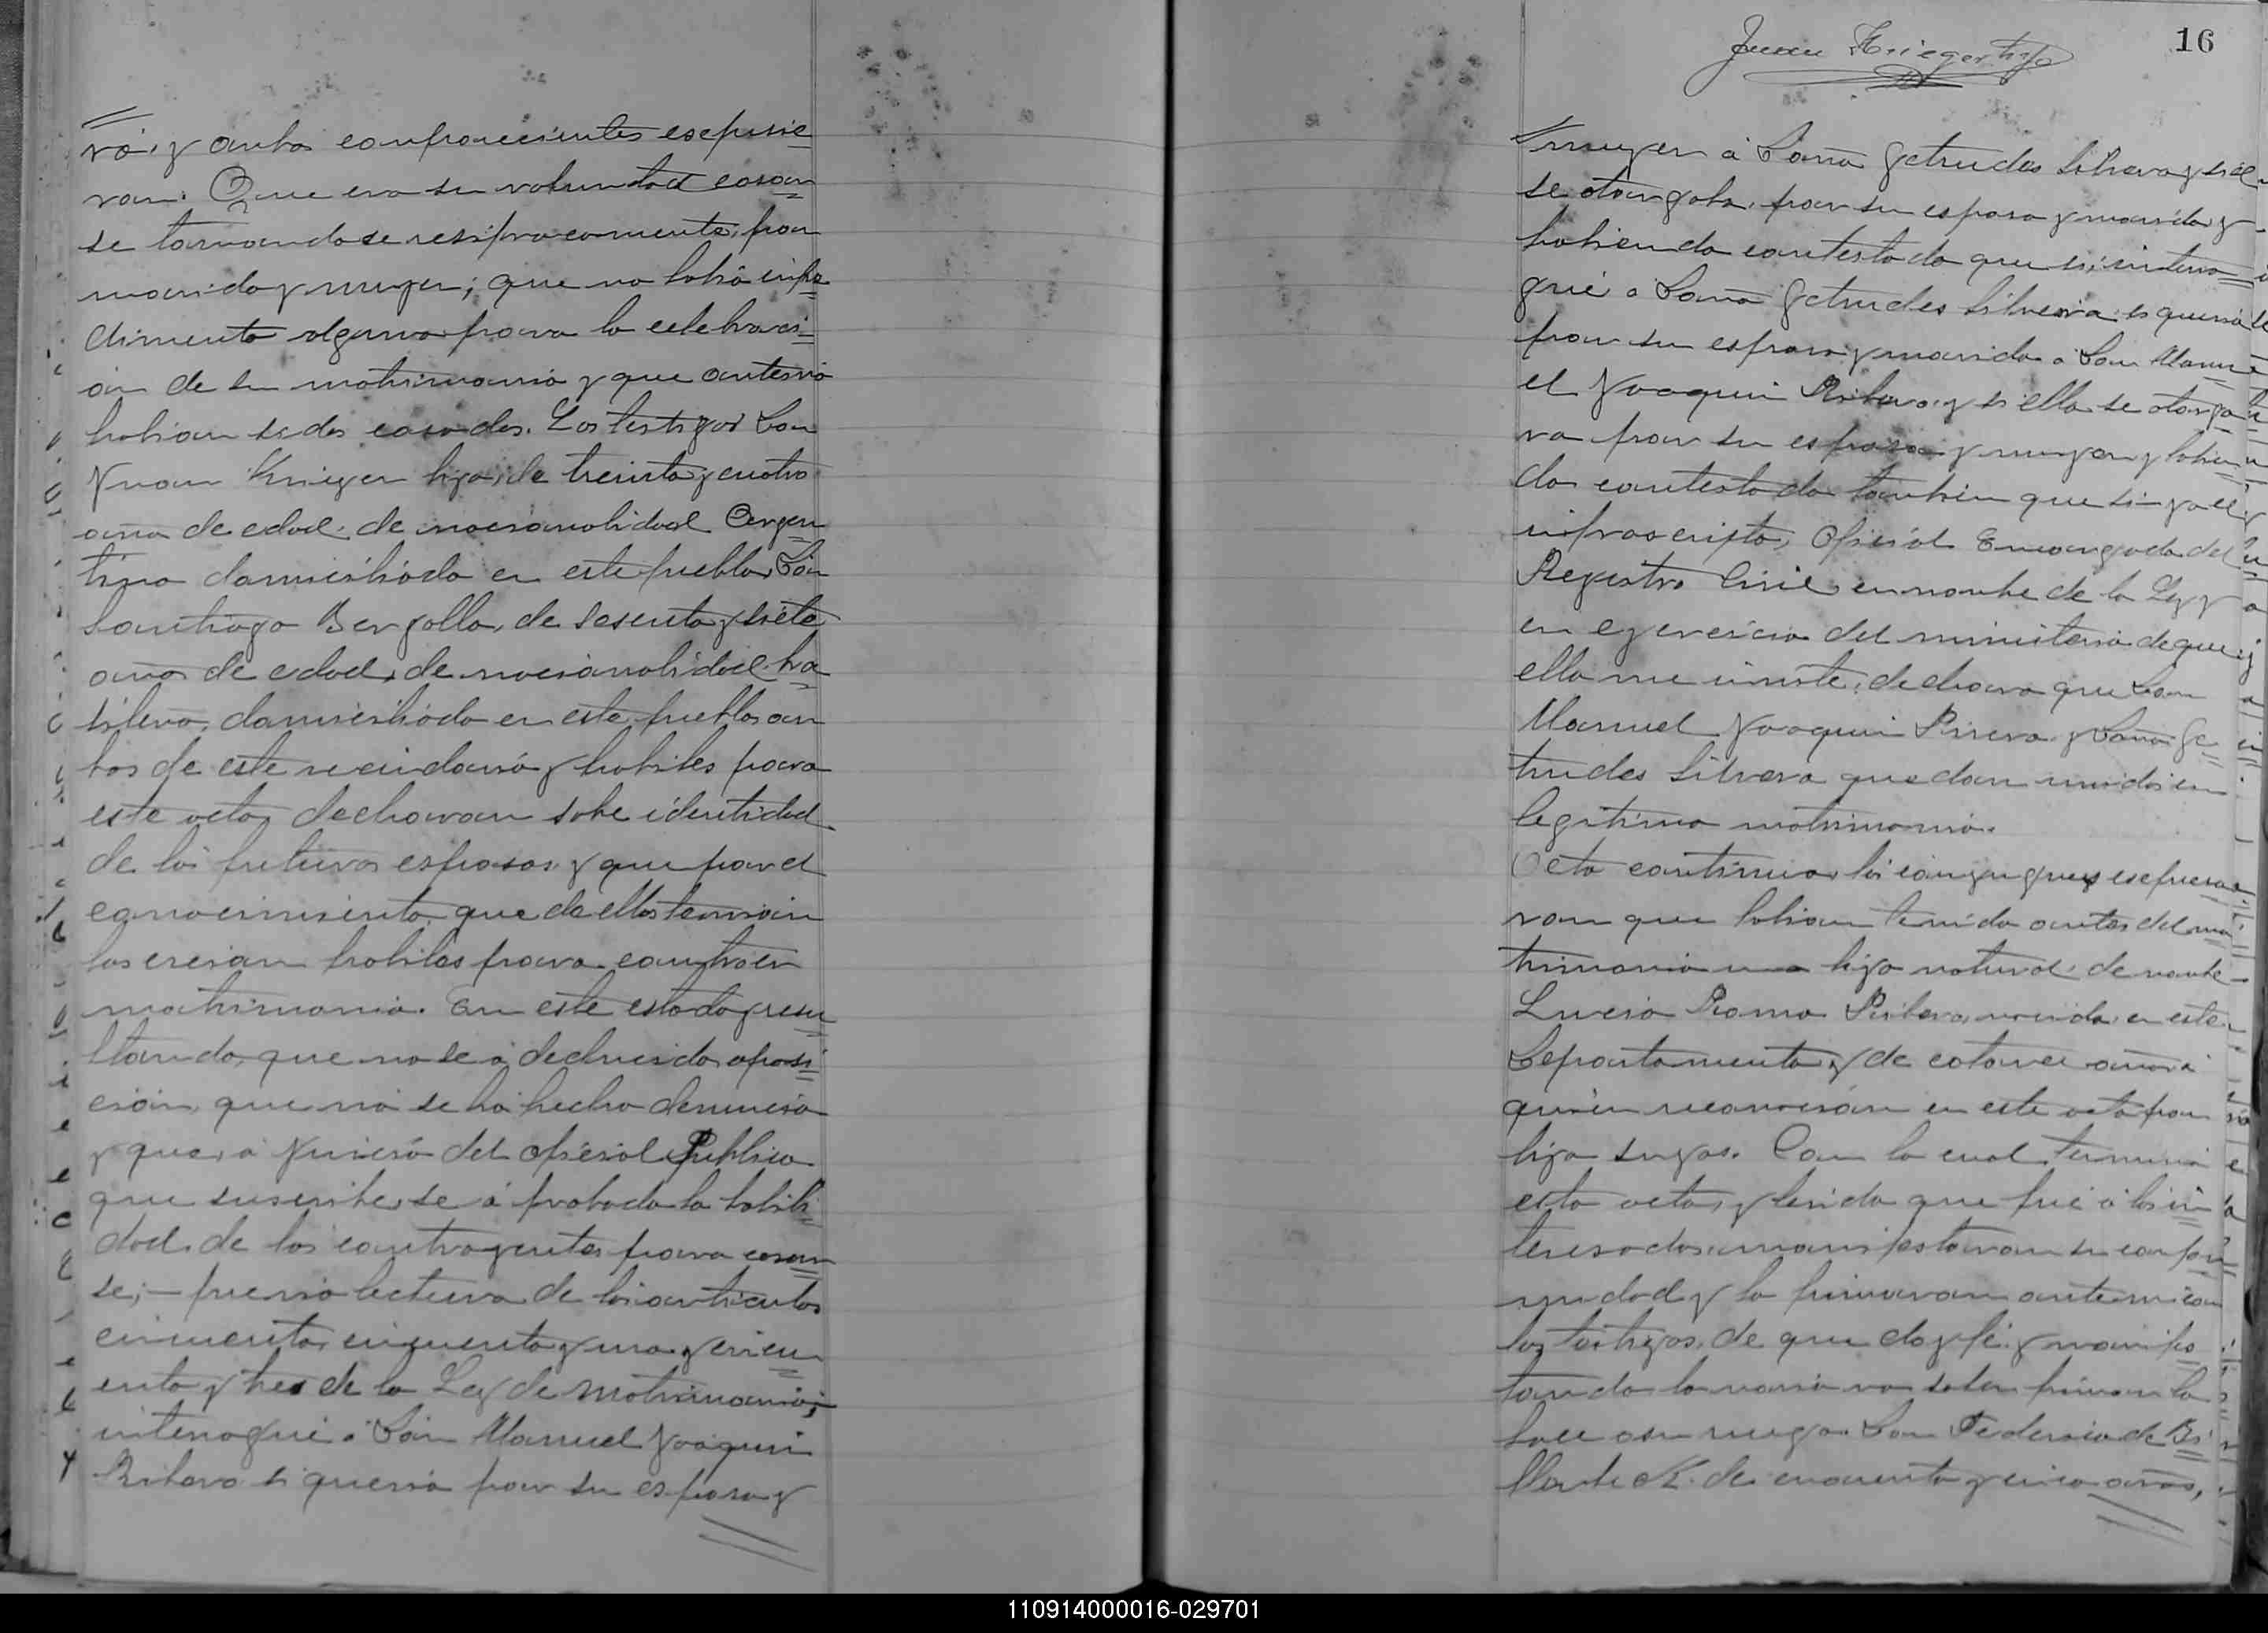 ra. y anbos comparecientes esepusie
ron. Que era su voluntad casar
se tomandose resiprocamente, por
marido y muger; que no habia inpe
dimento alguno para la celebraci
ón de su matrimonio y que antes no
habian sidos casados. Los testigos Don
Juan Krieger hijo, de treinta y cuatro
años de edad, de nacionalidad Argen
tino domisiliado en este pueblo, Don
Santiago Bergallo, de sesenta y siete
años de edad, de nacionalidad bra
silero, domisiliado en este pueblo an
bos de este vecindario y habiles para
este acto, declararan sobre identidad
de los futuros esposos, y que por el
conocimiento que de ellos tenian
los creian habiles para contraer
matrimonio. En este estado y resu
ltando, que no se á deducido oposi
ción, que no se ha hecho denuncia
y que, a juicio del ofisial Publico
que suscribe, se á probado la habili
dad de los contrayentes para casar
se; — previo lectura de los articulos
cincuenta, cincuenta y uno y cincu
enta y tres de la Ley de Matrimonio;
interrogué á Don Manuel Joaquin
Ribero si queria por su esposa y
Juan Krieger hijo
16
muger á Doña Getrudes Silvera y si el
se otorgaba, por su esposo y marido, y
habiendo contestado que si, interro
gué a Doña Getrudes Silveira si queria
por su esposo y marido a Don Manu
el Joaquin Ribero, y si ella se otorga
va por su esposa y muger y habien
do contestado tanbien que si = yo el
infrascripto, Ofisial Encargado del
Registro Civil, en nonbre de la Ley y
en ejeresicio del ministerio de que
ella me inviste, declaro que Don
Manuel Joaquin Rivera y Doña Ge
trudes Silvera quedan unidos en
legitimo matrimonio.
Acto continuo, los conyugues esepresa
ron que habian tenido antes del ma
trimonio un hijo natural de nonbre
Lucio Ramo Ribero, nacido en este
Departamento, y de catorce años á
quién reconocian en este acto por
hijo suyos. Con lo cual termina
esta acta, y leida que fué á los in
teresados, manifestaron su confor
midad y la firmaron ante mi con
los testigos, de que doy fé, y manifes
tando la novia no saber firmar lo
hace a su ruego Don Federico de Bi
de cuarenta y cinco años,
110914000016-029701